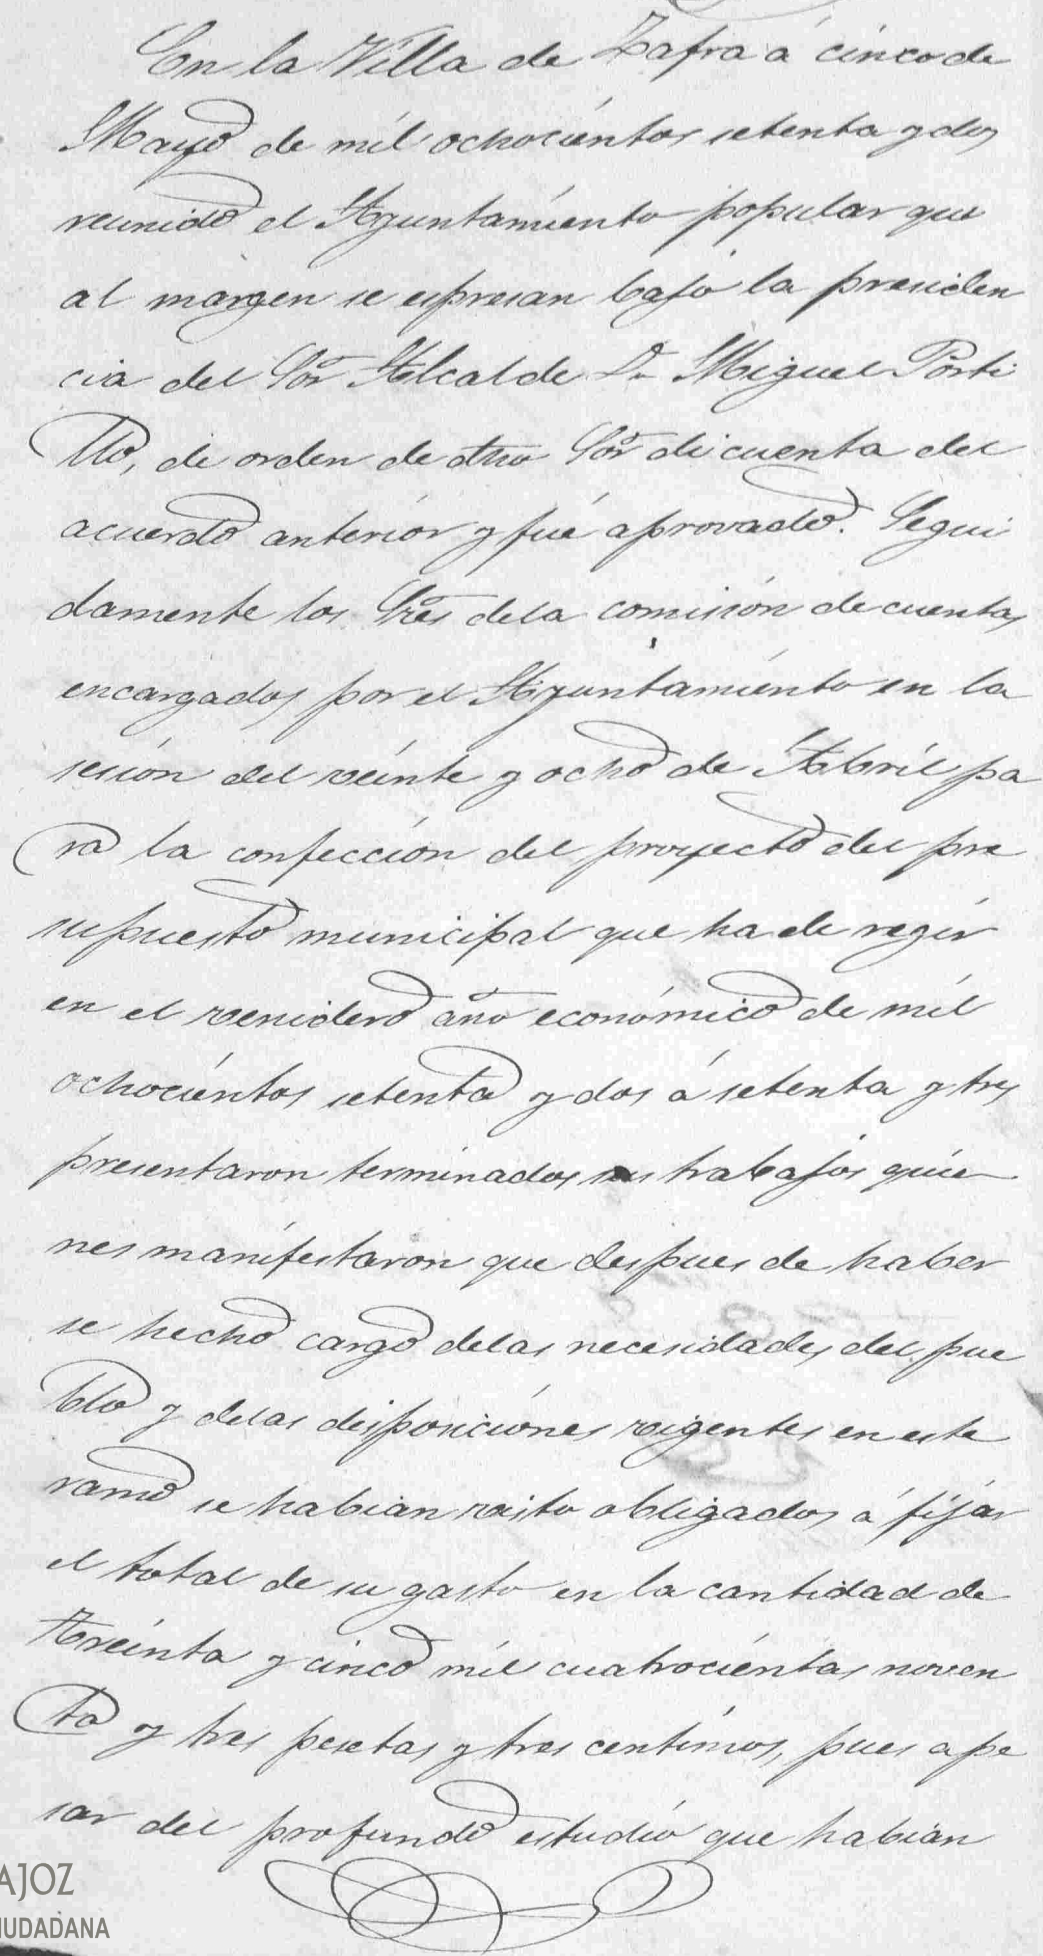 En la Villa de Zafra á cinco de
Mayo de mil ochocientos setenta y dos
reunido el Ayuntamiento popular que
al margen se espresan bajo la presiden
cia del Sor Alcalde Dn Miguel Porti
llo, de orden de dho Sor di cuenta del
acuerdo anterior y fué aprovado. Segui
damente los Sres dela comision de cuentas
encargados por el Ayuntamiento en la
sesion del veinte y ocho de Abril pa
ra la confeccion del proyecto del pre
supuesto municipal que ha de regir
en el venidero año económico de mil
ochocientos setenta y dos á setenta y tres
presentaron terminados sus trabajos quie
nes manifestaron que despues de haber
se hecho cargo delas necesidades del pue
blo y delas disposiciones vigentes en este
ramo se habian visto obligados á fijar
el total de su gasto en la cantidad de
treinta y cinco mil cuatrocientas noven
ta y tres pesetas y tres centimos, pues ape
sar del profundo estudio que habian
AJOZ
IUDADANA